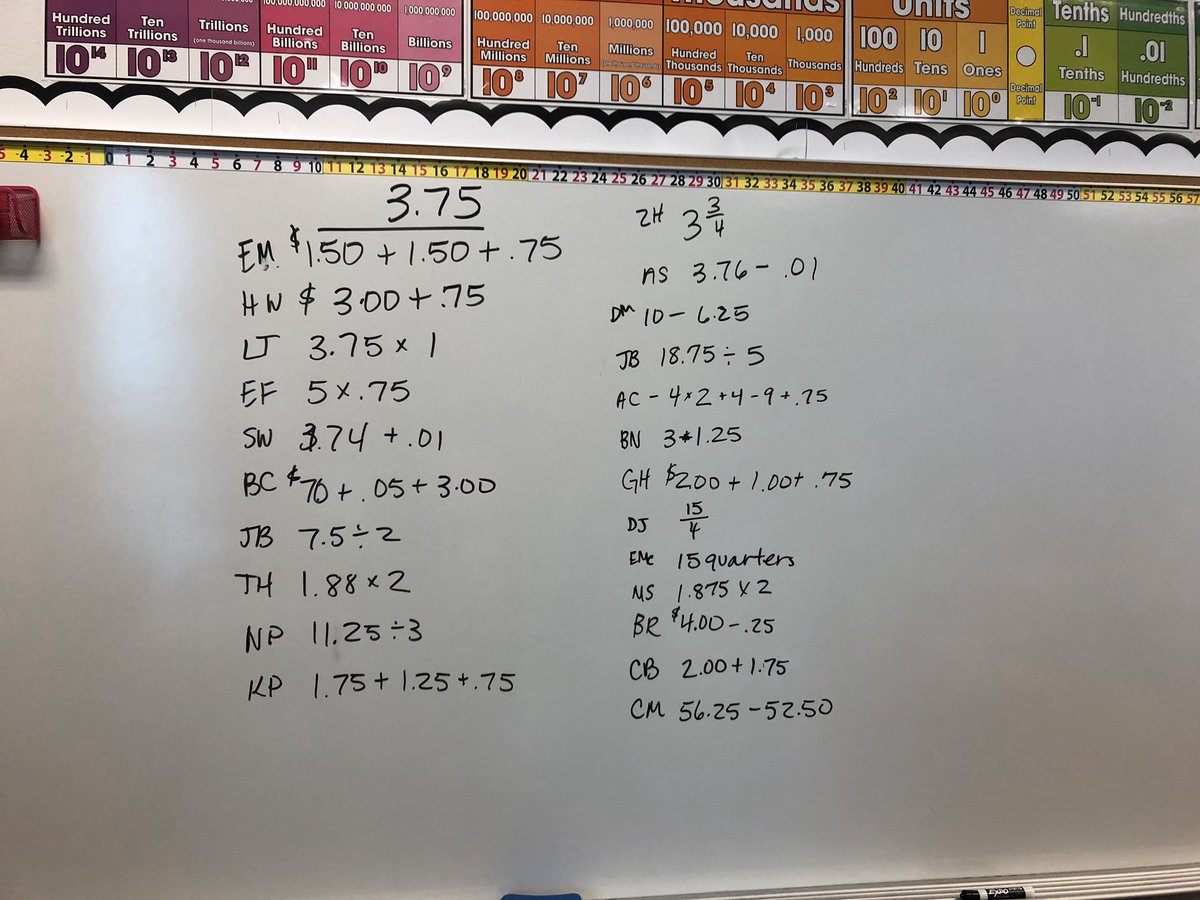 100,000,000,000 10,000,000,000 1,000,000,000 100,000,000 10,000,000 1,000,000 100,000 10,000 1,000 100 10 1 Decimal Point Tenths Hundredths
Hundred Trillions Ten Trillions Trillions (one thousand billions) Hundred Billions Ten Billions Billions Hundred Millions Ten Millions Millions (one thousand thousands) Hundred Thousands Ten Thousands Thousands Hundreds Tens Ones .1 Tenths .01 Hundredths
10¹⁴ 10¹³ 10¹² 10¹¹ 10¹⁰ 10⁹ 10⁸ 10⁷ 10⁶ 10⁵ 10⁴ 10³ 10² 10¹ 10⁰ Decimal Point 10⁻¹ 10⁻²
Thousands Units
-4 -3 -2 -1 0 1 2 3 4 5 6 7 8 9 10 11 12 13 14 15 16 17 18 19 20 21 22 23 24 25 26 27 28 29 30 31 32 33 34 35 36 37 38 39 40 41 42 43 44 45 46 47 48 49 50 51 52 53 54 55 56 57
3.75
EM $1.50 + 1.50 + .75
HW $3.00 + .75
LJ 3.75 × 1
EF 5 × .75
SW 3.74 + .01
BC $70 + .05 + 3.00
JB 7.5 ÷ 2
TH 1.88 × 2
NP 11.25 ÷ 3
KP 1.75 + 1.25 + .75
ZH 3 3/4
AS 3.76 - .01
DM 10 - 6.25
JB 18.75 ÷ 5
AC - 4×2+4-9+.75
BN 3*1.25
GH $2.00 + 1.00+ .75
DJ 15/4
EMc 15 quarters
MS 1.875 × 2
BR $4.00 - .25
CB 2.00 + 1.75
CM 56.25 - 52.50
EXPO